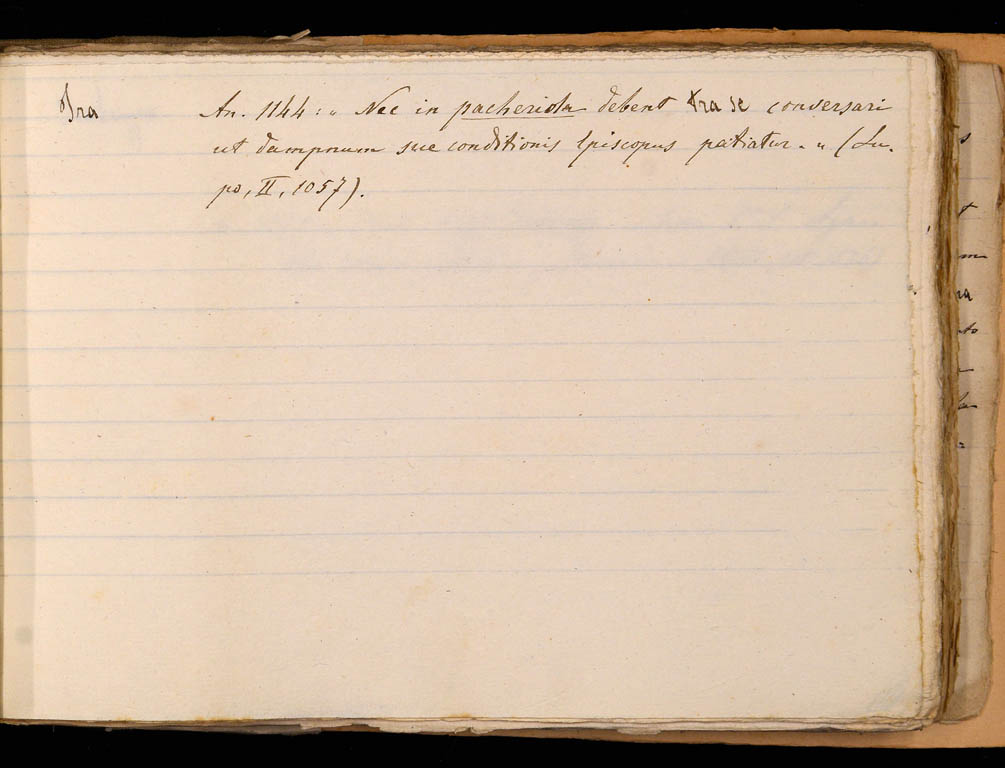 Tra An. 1144: " Nec in pacherida debent tra se conversari
ut dampnum sue conditionis Episcopus patiatur. " (Lu-
po, II, 1057).
m
ra